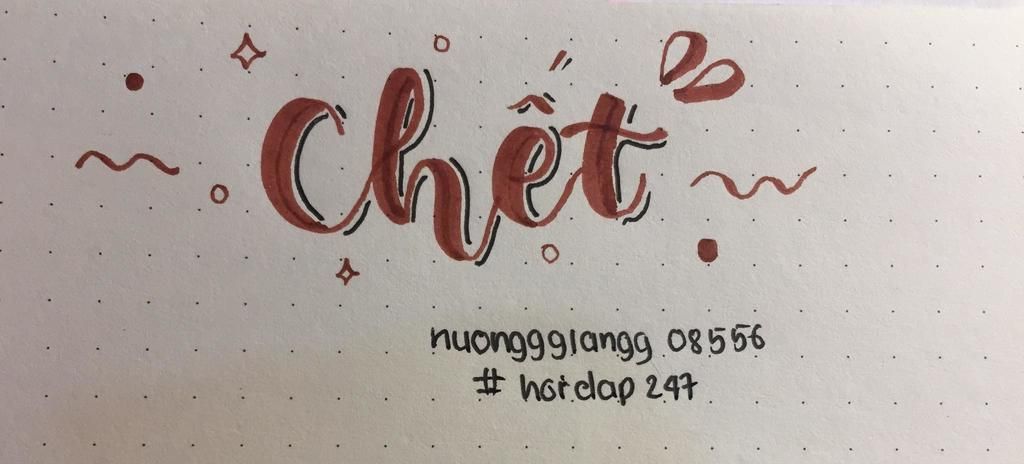 Chết
nuongggiangg 08556
# hoidap 247